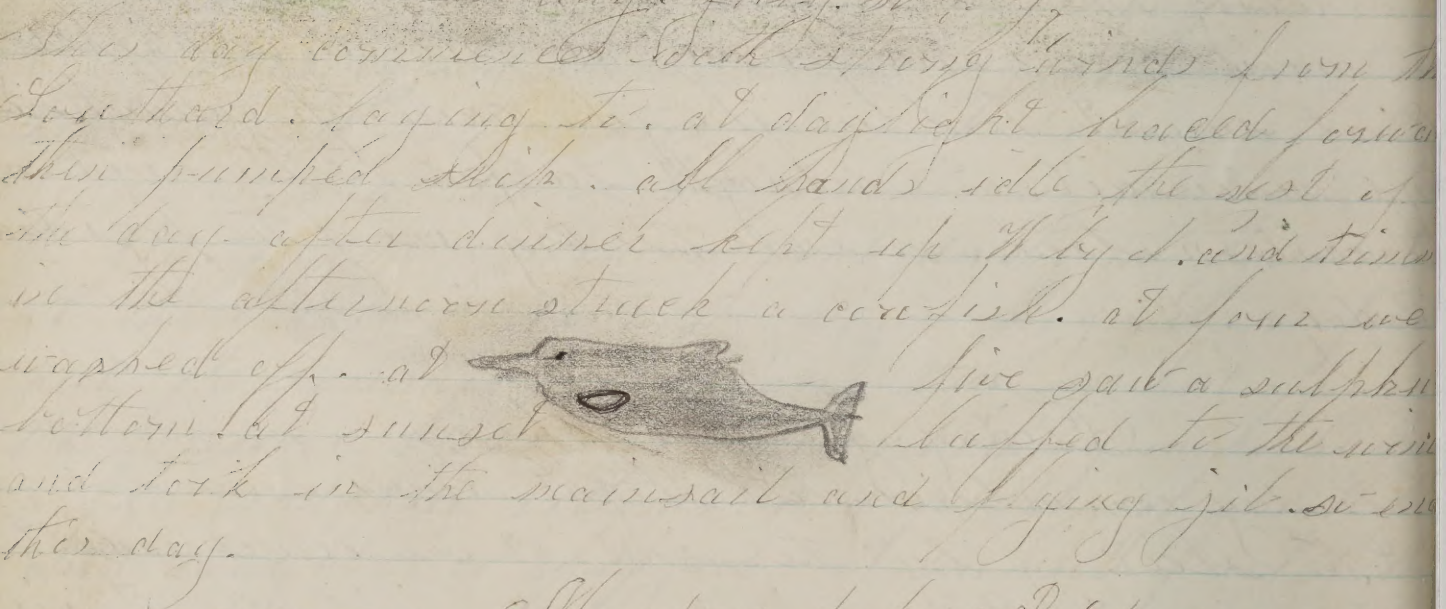 This day commences with strong winds from th
Southard. laying to. at daylight braced forwa
then pumped ship. all hands idle the rest of
the day. after dinner kept up N by d. and trimm
in the afternoon struck a cowfish. at four we
wapped off. at five saw a sulphu
bottom. at sunset luffed to the win
and took in the mainsail and flying jib. so en
this day.